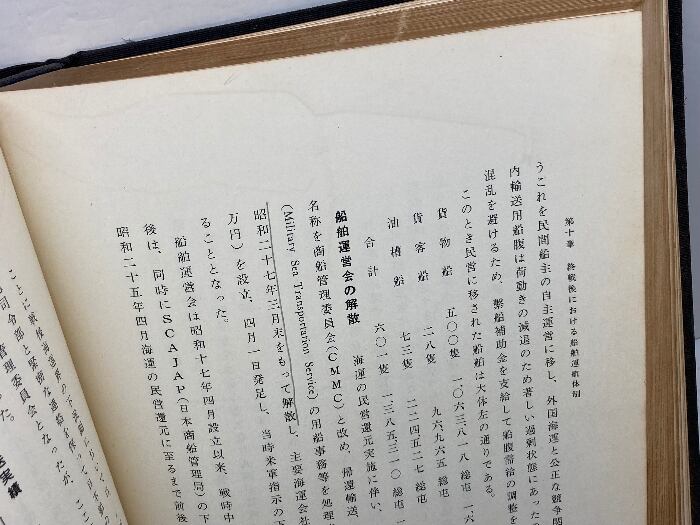 第十章 終戦後における船舶運航体制
うこれを民間船主の自主運営に移し、外国海運と公正な競争関
内輸送用船腹は荷動きの減退のため著しい過剰状態にあった
混乱を避けるため、繋船補助金を支給して船腹需給の調整を
このとき民営に移された船舶は大体左の通りである。
貨物船 五〇〇隻 一、〇六三、八一八 総屯 一、六
貨客船 二八隻 九六、九六五 総屯
油槽船 七三隻 二二四、五二七 総屯
合計 六〇一隻 一、三八五、三一〇 総屯
船舶運営会の解散 海運の民営還元実施に伴い、
名称を商船管理委員会(CMMC)と改め、帰還輸送、
(Military Sea Transportation Service)の用船事務等を処理
昭和二十七年三月末をもって解散し、主要海運会社
万円)を設立、四月一日発足し、当時米軍指示の下
ることとなった。
船舶運営会は昭和十七年四月設立以来、戦時中
後は、同時にSCAJAP(日本商船管理局)の下
昭和二十五年四月海運の民営還元に至るまで前後
ことに戦後海運界の
司令部と緊密な連絡を保っ
管理委員会となったが、ここ
った。
実績